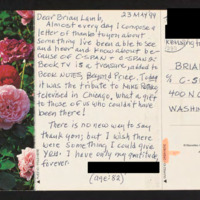 Dear Brian Lamb, 23 MAY 99
Almost every day I compose a
letter of thanks to you about
something I've been able to see
and hear and know about be-
cause of C-SPAN + C-SPAN2
BOOK TV is a treasure added to
BOOK NOTES, Beyond Price. Today
it was the tribute to
televised in Chicago, what a gift
to those of us who couldn't have
been there!
There is no new way to say
thank you, but I wish there
were something I could give
YOU. I have only my gratitude,
forever.
(age 82)
BRIAN
C-SPAN
400 NO
WASHIN